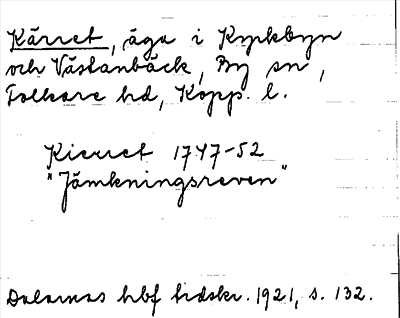 Kärret, äga i Kyrkbyn
och Västanbäck, By sn,
Folkare hd, Kopp. l.
Kierret 1747-52
"Jämkningsreven"
Dalarnas hbf tidskr. 1921, s. 132.